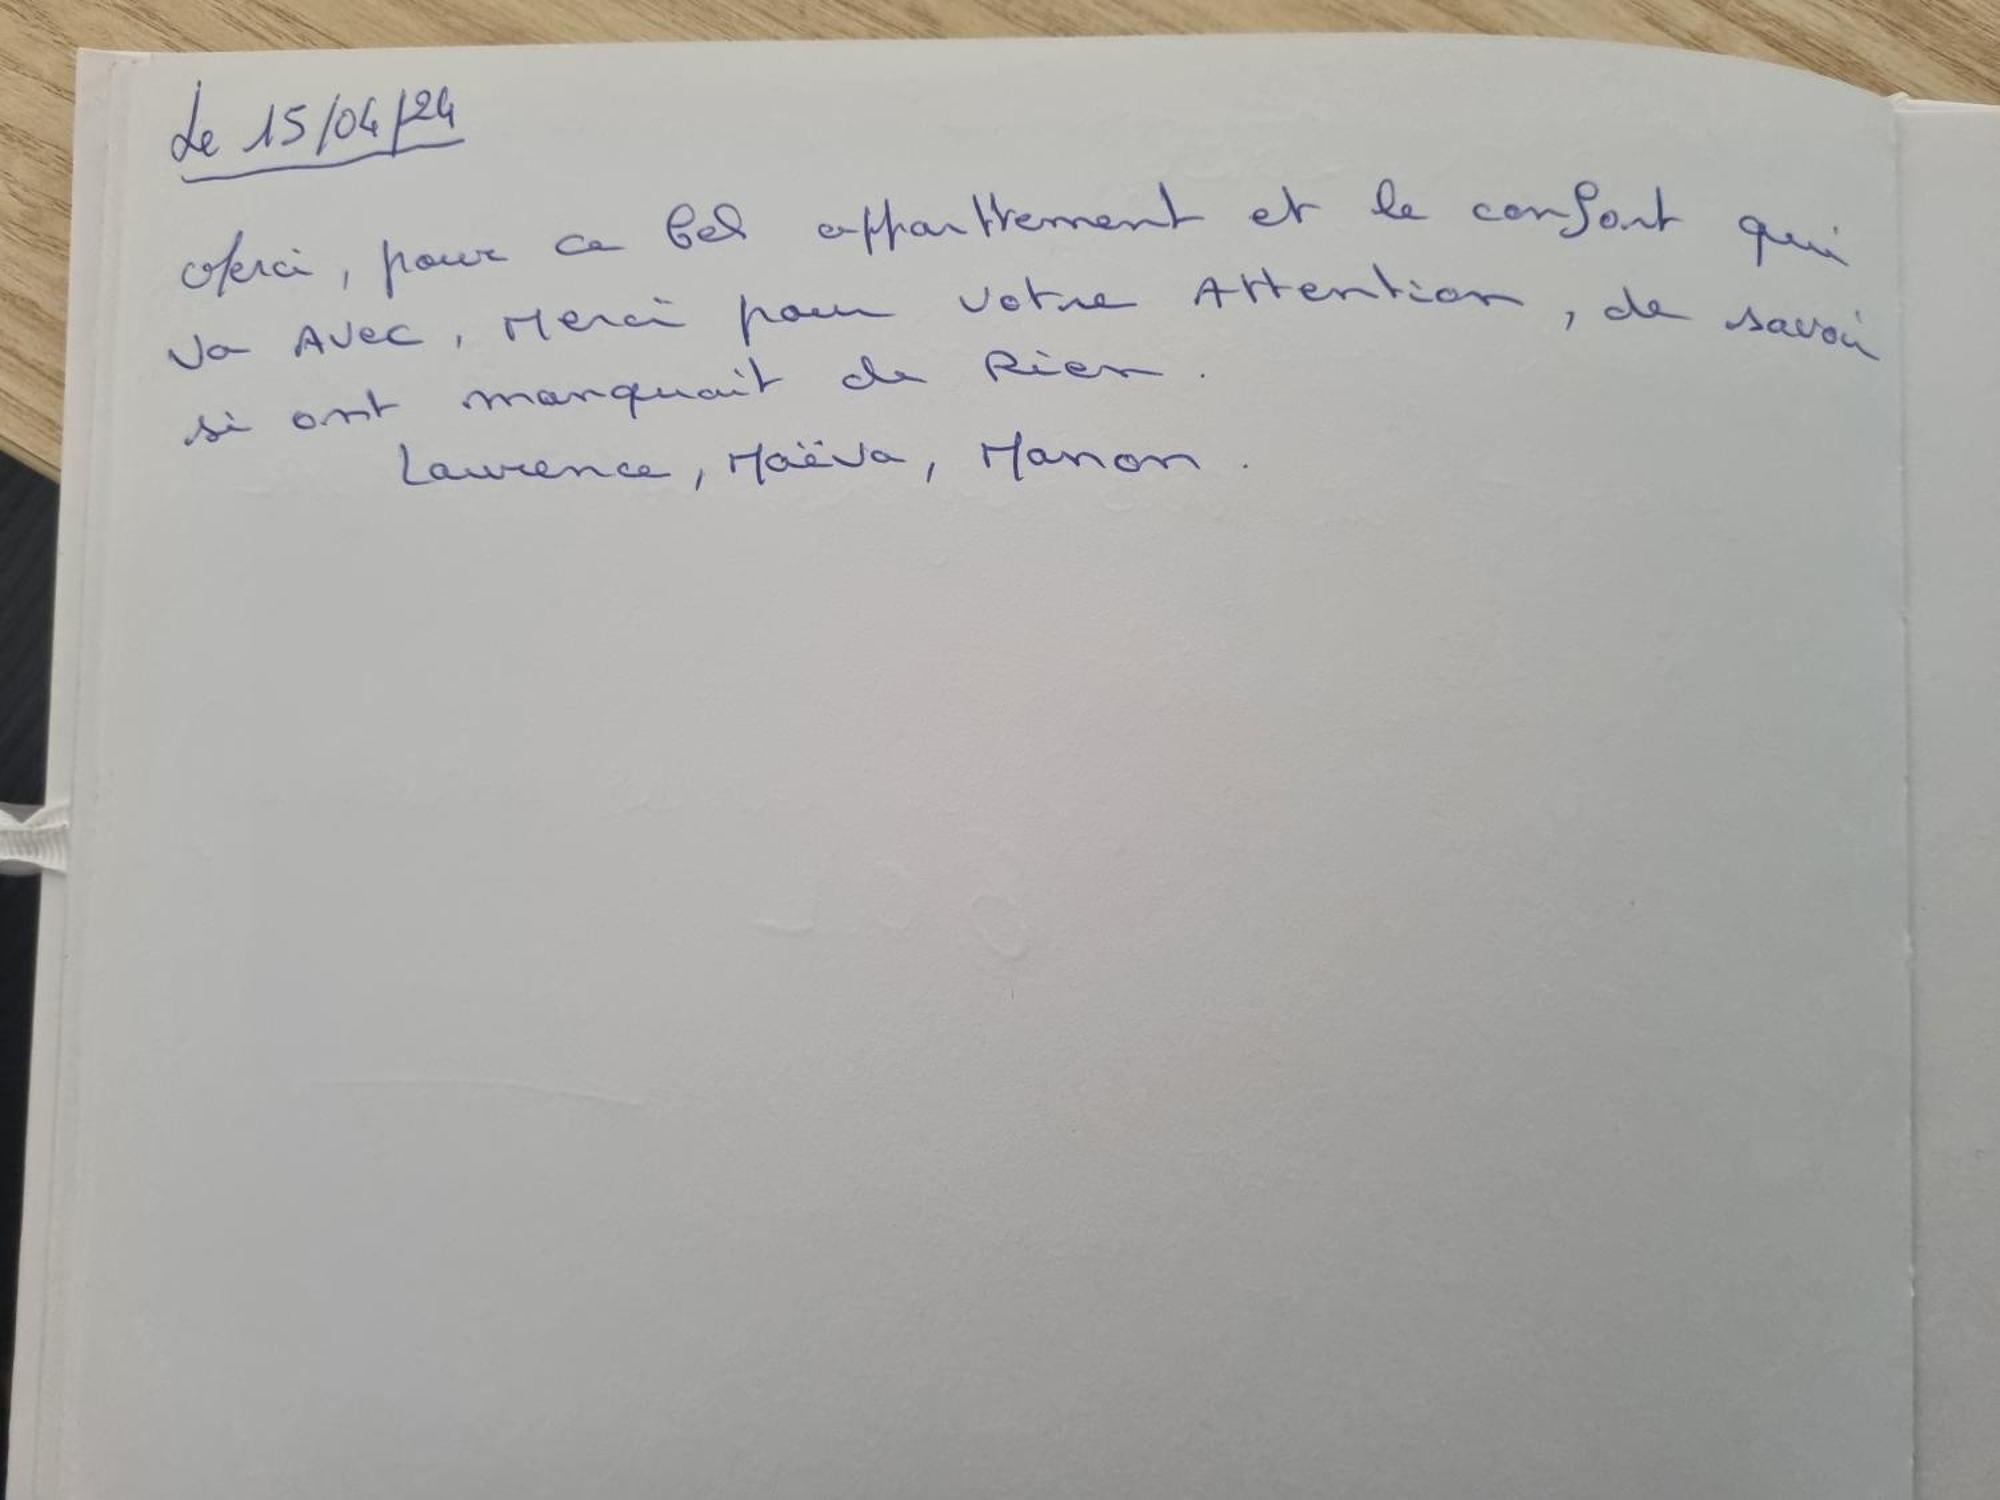 Le 15/04/24
Merci, pour ce bel apparttement et le confort qui
va AVec, Merci pour votre Attention, de savoir
si ont manquait de Rien.
Laurence, Maëva, Manon.